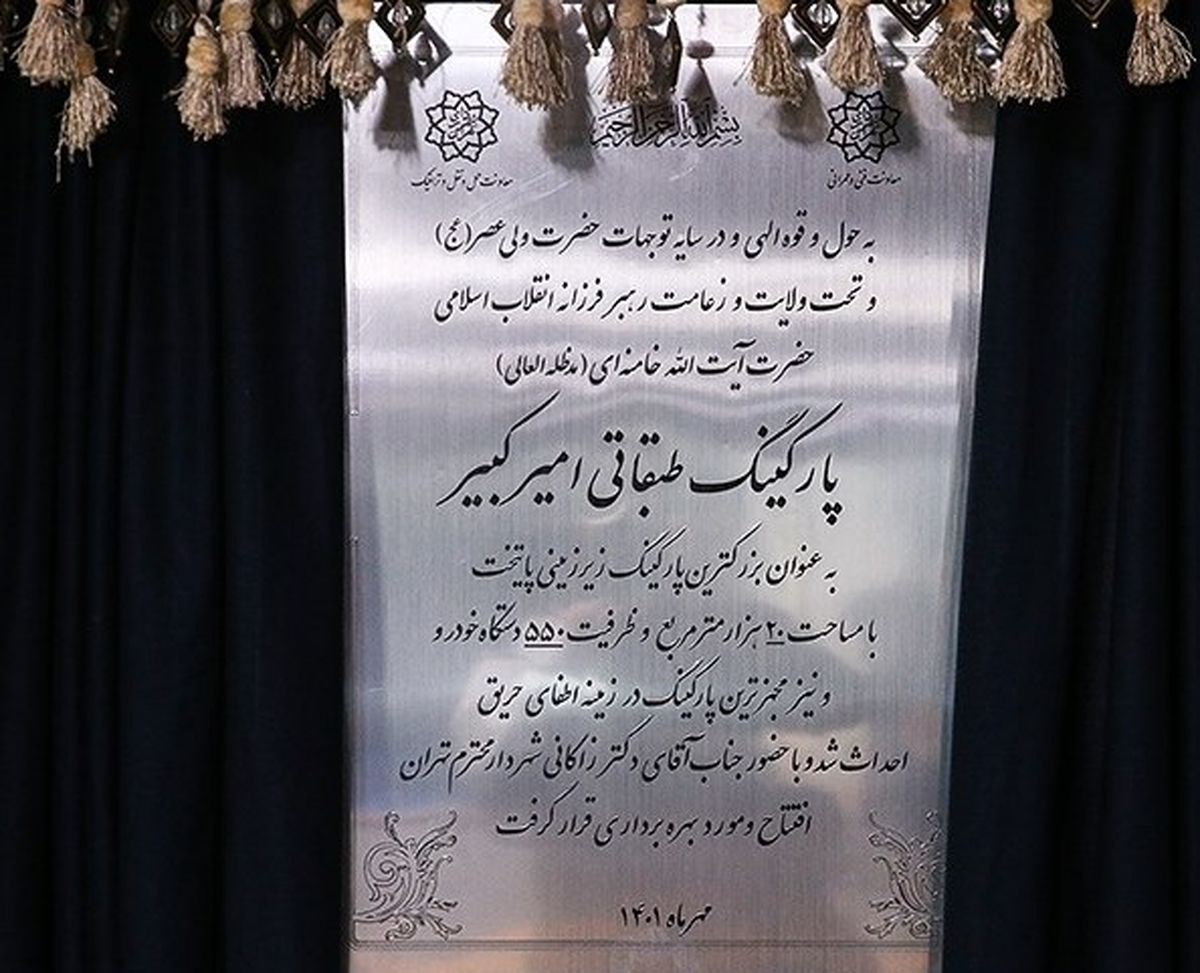 بسم الله الرحمن الرحیم
معاونت فنی و عمرانی
معاونت حمل و نقل و ترافیک
به حول و قوه الهی و در سایه توجهات حضرت ولی عصر (عج)
و تحت ولایت و زعامت رهبر فرزانه انقلاب اسلامی
حضرت آیت الله خامنه ای (مدظله العالی)
پارکینگ طبقاتی امیرکبیر
به عنوان بزرگترین پارکینگ زیرزمینی پایتخت
با مساحت ۲۰ هزار متر مربع و ظرفیت ۵۵۰ دستگاه خودرو
و نیز مجهزترین پارکینگ در زمینه اطفای حریق
احداث شد و با حضور جناب آقای دکتر زاکانی شهردار محترم تهران
افتتاح و مورد بهره برداری قرار گرفت
مهر ماه ۱۴۰۱